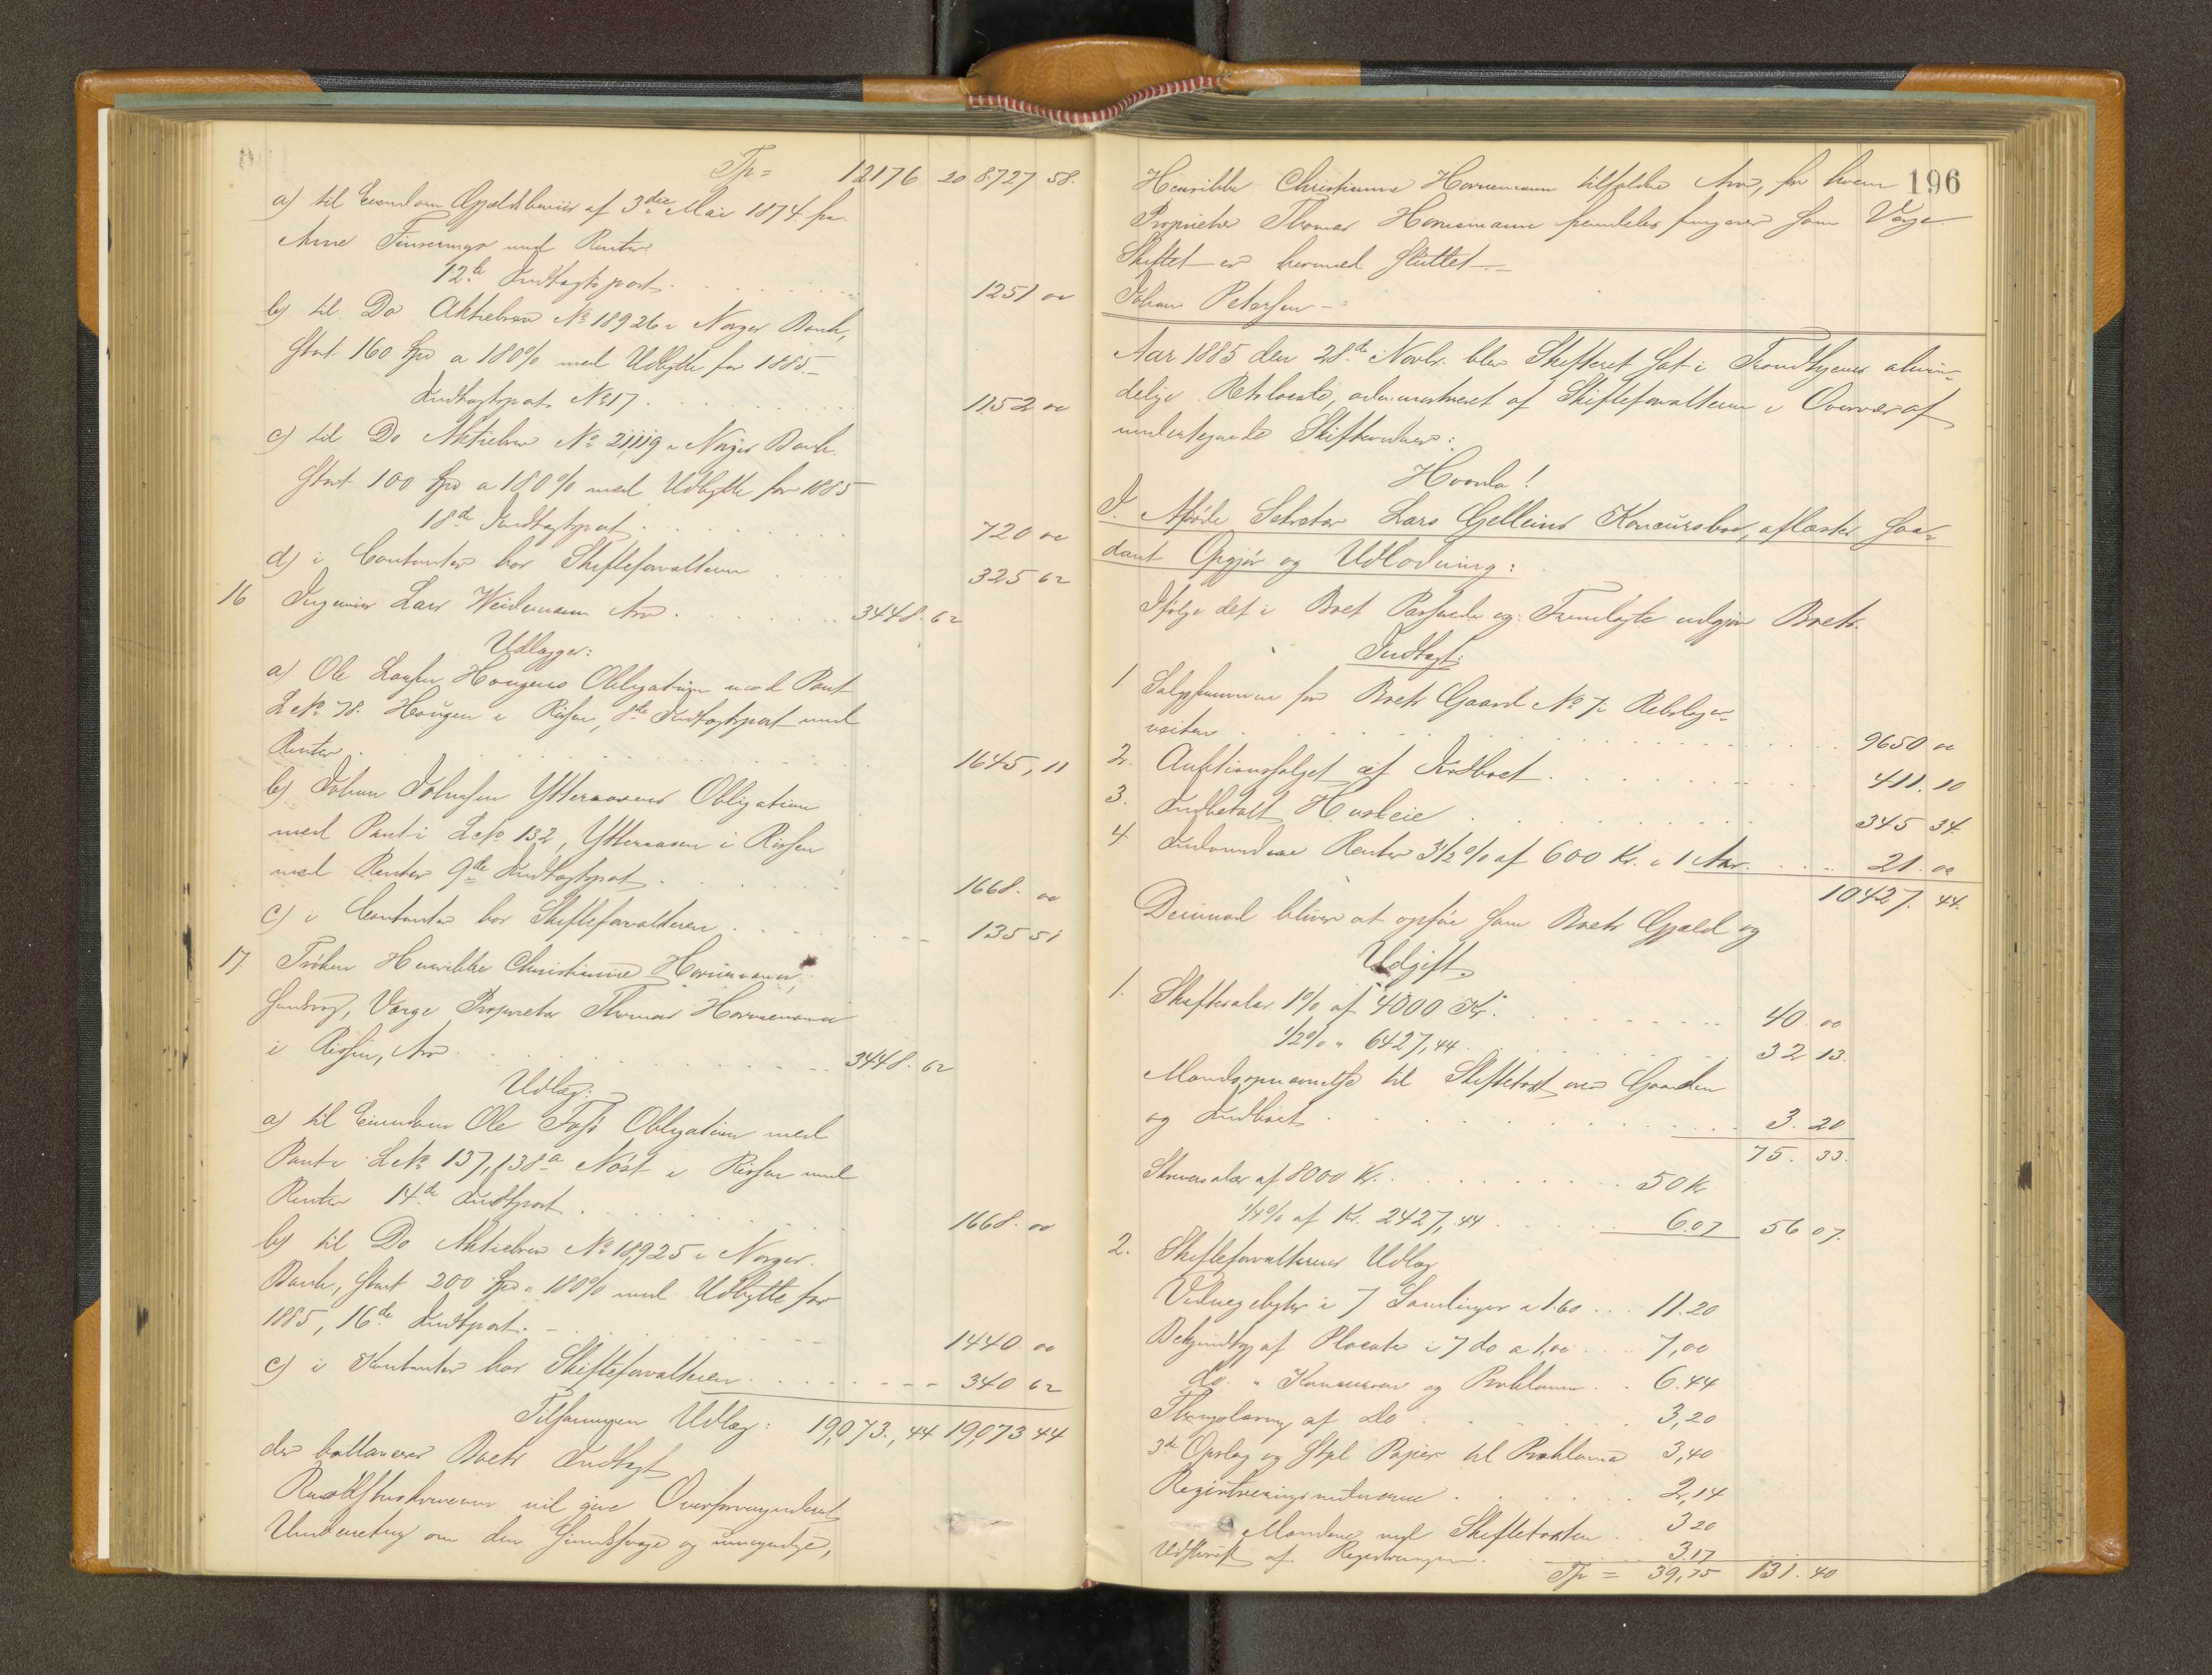 Tp = 12176 20 8727 58.
a) til Eiendom Gjældsbeviis af 3die Mai 1874 fra
Arne Finserings med Renter
12te Indtægtspost. 1251 00
b) til Do Aktiebrev No 18926 i Norges Bank,
stort 160 Spd a 180% med Udbytte for 1885.
Indtægtspost No 17. 1152 00
c) til Do Aktiebrev No 21,119 i Norges Bank
stort 100 Spd a 180% med Udbytte for 1885
18de Indtægtspost. 720 00
d) i Contanter hos Skifteforvalteren 325 62
16 Ingeniør Lars Weidemann Arv. 3448. 62
Udlægges:
a) Ole Larsen Hougens Obligation med Pant
L No 78. Hougen i Rissen, 8de Indtægtspost med
Renter. 1645, 11
b) Johan Johnsen Ytteraasens Obligation
med Pant i L No 132, Ytteraasen i Rissen
med Renter 9de Indtægtspost. 1668. 00
c) i Contanter hos Skifteforvalteren. 135 51
17 Frøken Henrikke Christianne Hornemann,
sindssyg, Værge Proprietær Thomas Hornemann
i Rissen, Arv 3448. 62
Udlæg:
a) til Eiendom Ole Obligation med
Pant i L No 137, 138a Nøst i Rissen med
Renter 14de Indtpost. 1668. 00
b) til Do Aktiebrev No 18,925 i Norges
Bank, stort 200 Spd a 180% med Udbytte for
1885, 16de Indtpost. 1440. 00
c) i Kontanter hos Skifteforvalteren. 340 62
Tilsammen Udlæg: 19,073., 44 19,073 44
der ballancerer Boets Indtægt
vil give Overformynderiet
Underretning om den Sindssvage og umyndige,
196
Henrikke Christianne Hornemann tilfaldne Arv, for hvem
Proprietær Thomas Hornemann fremdeles fungerer som Værge
Skiftet er hermed sluttet.
Johan Petersen
Aar 1885 den 28de Novbr. blev Skifteret sat i Trondhjems almin-
delige Retslocale, administreret af Skifteforvalteren i Overvær af
undertegnede Skiftevidner:
Hvorda!
I. Afdøde Sekretær Lars Gelleins Konkursbo, aflæstes saa-
dant Opgjør og Udlodning:
Ifølge det i Boet Passerede og Fremlagte udgjør Boets
Indtægt:
1. Salgssummen for Boets Gaard No 7 i Rebslager-
veiten 9650 00
2. Auktionssalget af Indboet. 411. 10
3. Indbetalt Husleie 345 34.
4 Indvundne Renter 3½% af 600 Kr. i 1 Aar. 21. 00
10427. 44.
Derimod bliver at opføre som Boets Gjæld og
Udgift.
1. Skiftesalær 1% af 4000 Kr. 40. 00
½% " 6427,44 32 13.
Mandsopnævnelse til Skiftetaxt over Gaarden
og Indboet 3. 20
75. 33.
Skriversalær af 8000 Kr. 50 Kr
¼% af Kr. 2427, 44 6.07 56 07.
2. Skifteforvalterens Udlæg
Vidnegebyhr i 7 Samlinger a 1.60 11.20
Bekjendtg. af Placater i 7 do a 1,00 7,00
do. " Konkursen og Proklama 6.44
Stempling af do 3,20
3de Opslag og Stpl Papier til Proklama 3,40
Registreringsvidnerne 2,14
Mændene ved Skiftetaxten 3 20
Udskrift af Registreringen. 3.17
Tp = 39,75 131. 40